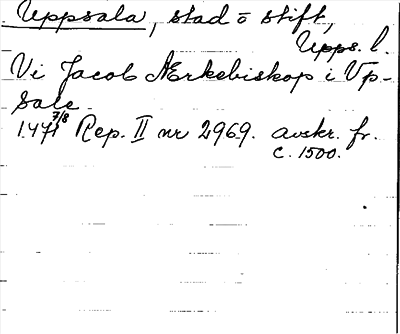 Uppsala, stad o stift,
Upps. l.
Vi Jacob Ærkebiskop i Vp-
sale
1471 7/8 Rep. II nr 2969. avskr. fr.
c. 1500.